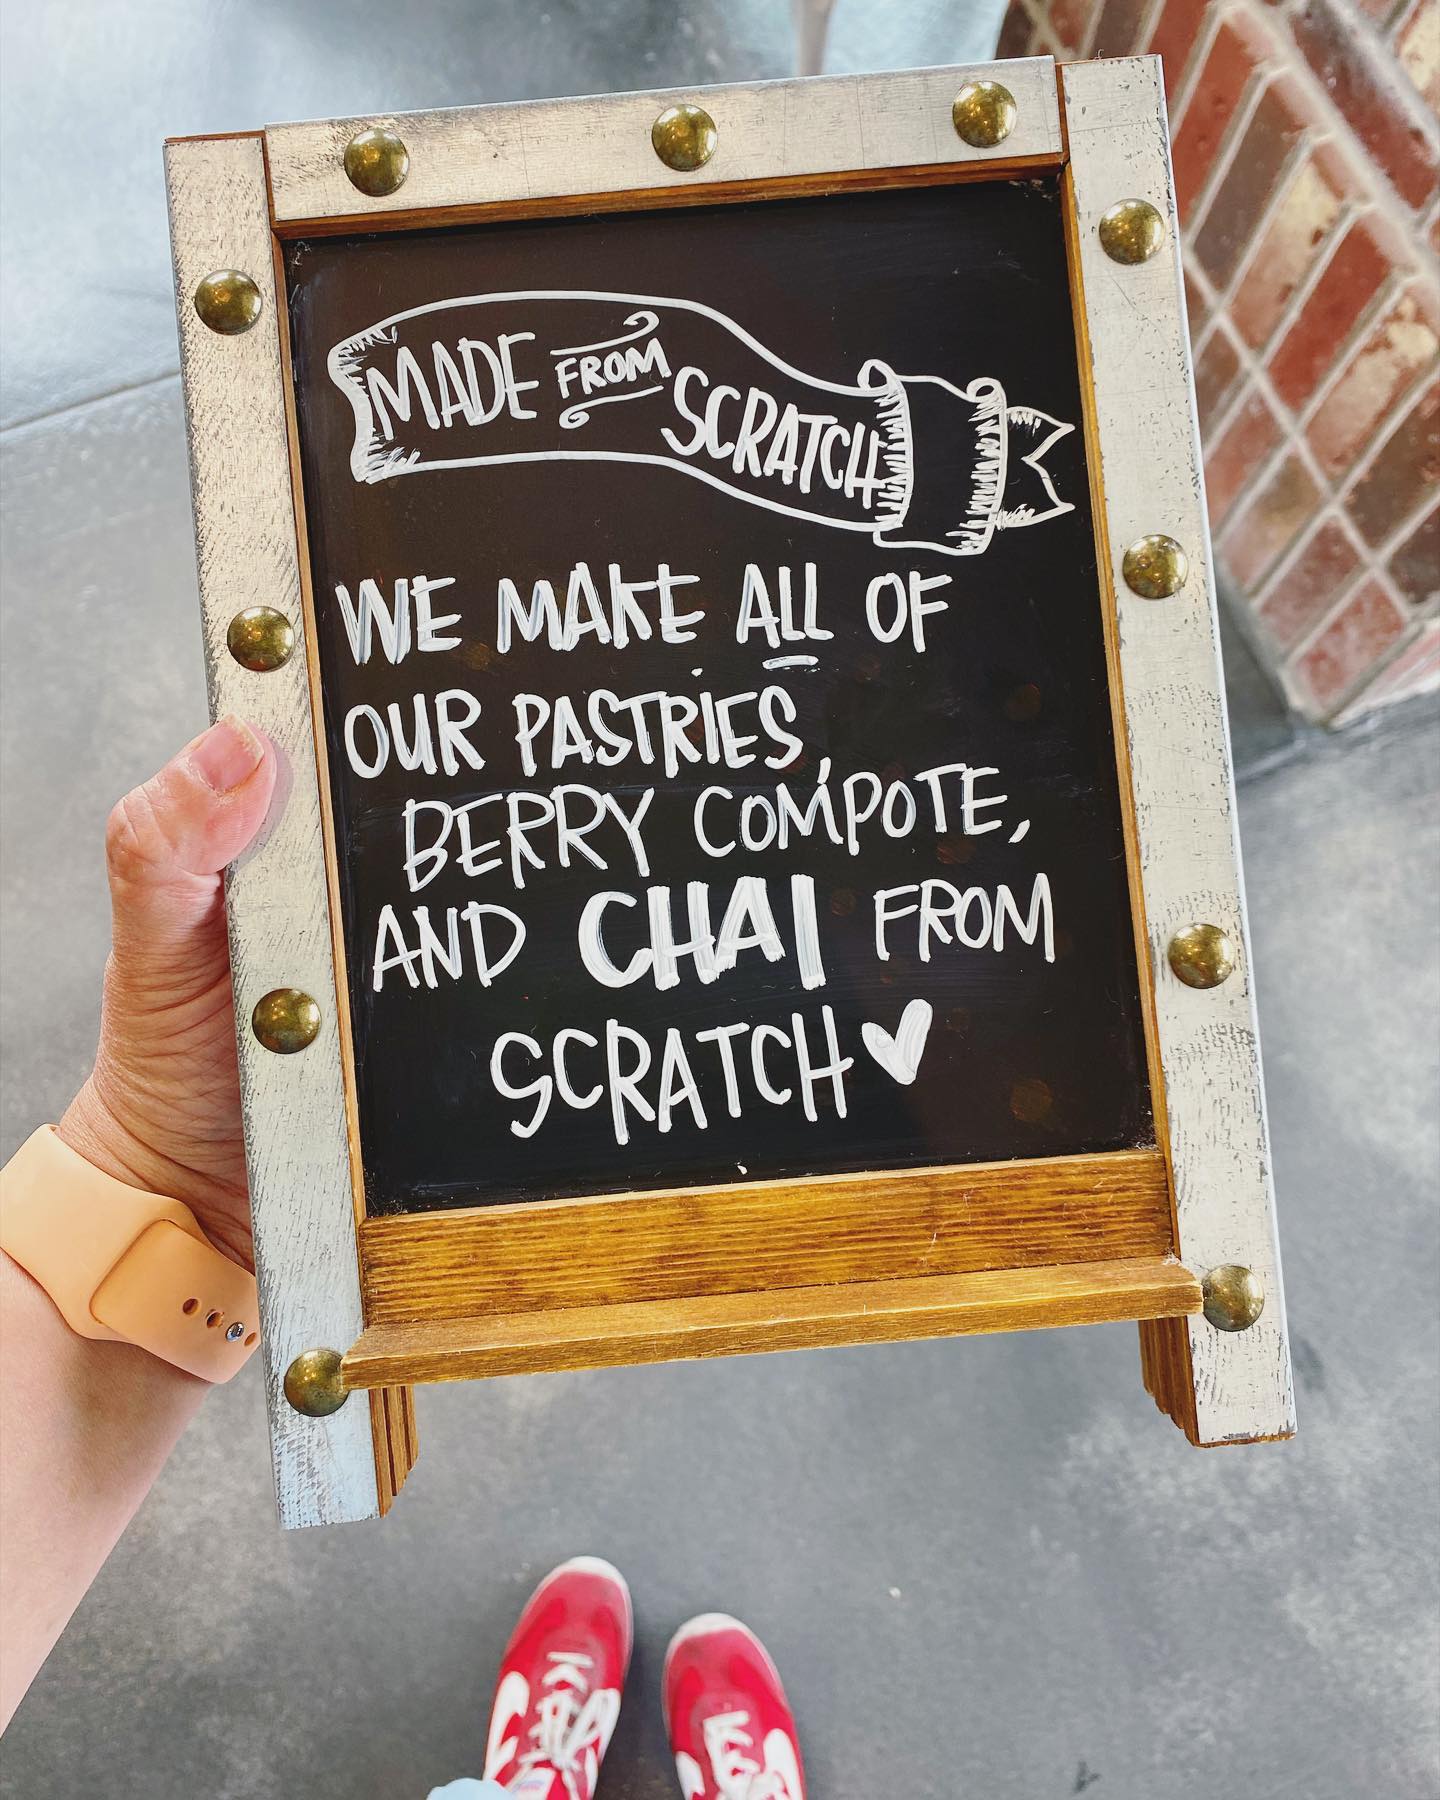 MADE FROM SCRATCH
WE MAKE ALL OF
OUR PASTRIES,
BERRY COMPOTE,
AND CHAI FROM
SCRATCH ♥